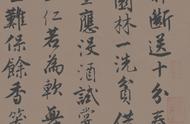 斷送十分春
園林一洗貧借
應浸酒試嘗
仁若為軟無
難保餘香篆